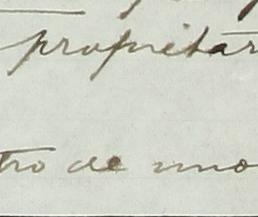 propietar
tro de uno